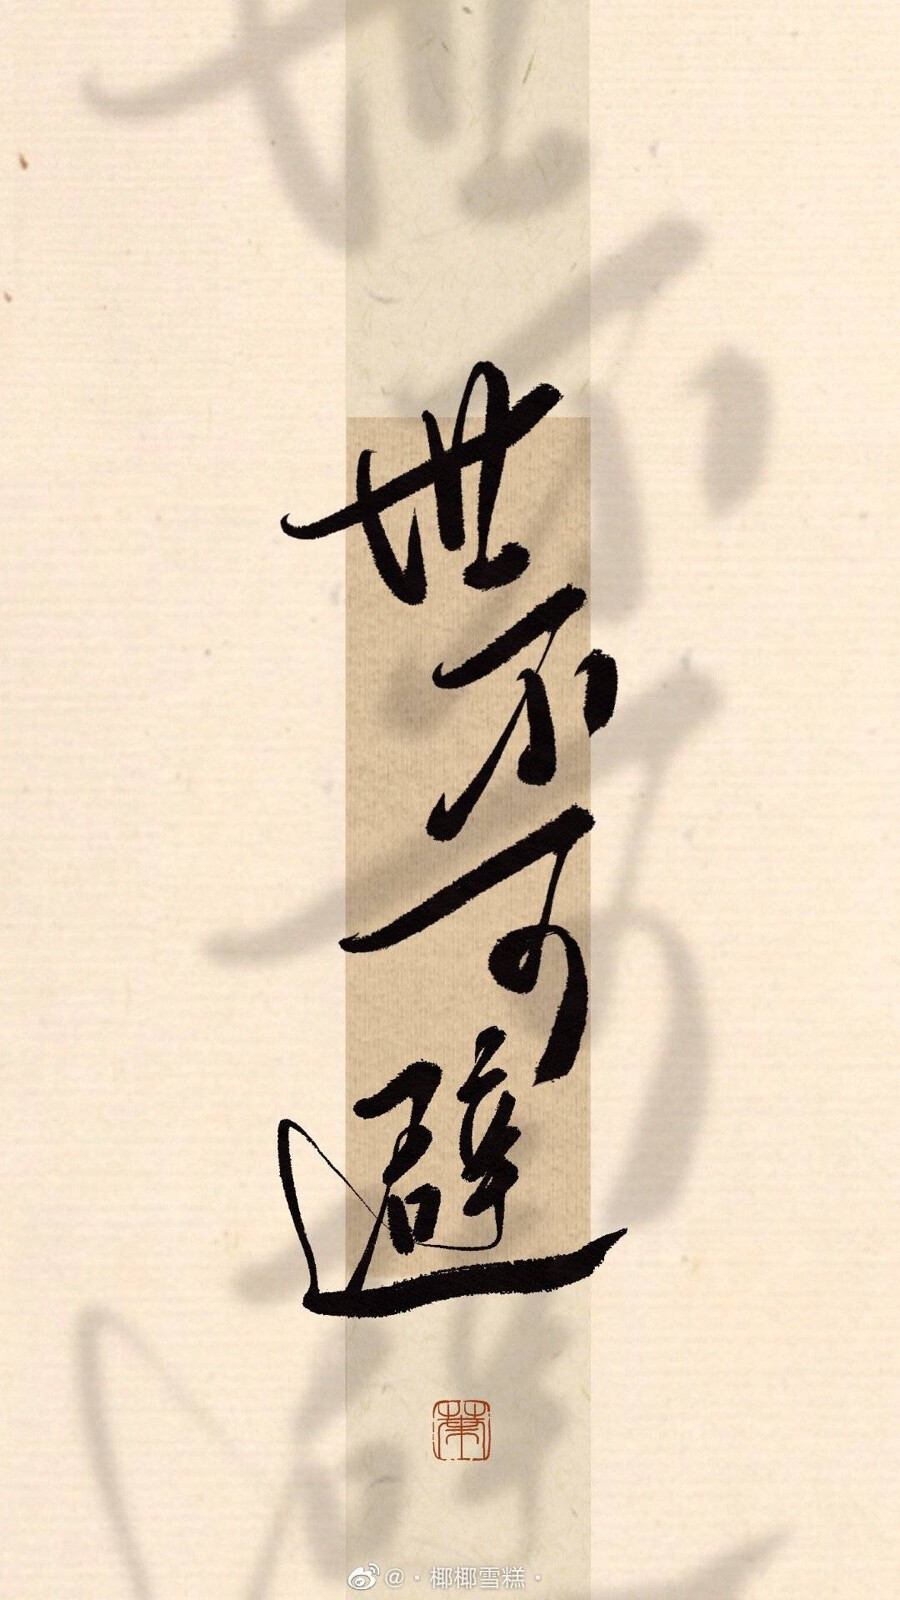 世不可避
@·椰椰雪糕·